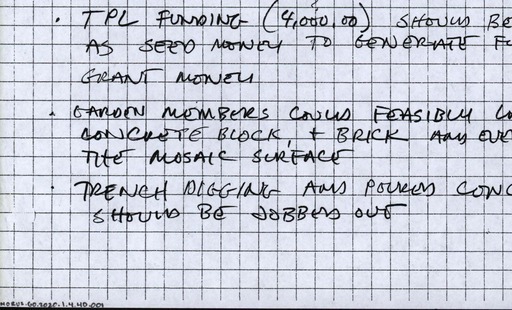 · TPL FUNDING (4,000.00) SHOULD BE
AS SEED MONEY TO GENERATE
GRANT MONEY
· GARDEN MEMBERS COULD FEASIBLY
CONCRETE BLOCK, + BRICK AND
THE MOSAIC SURFACE
· TRENCH DIGGING AND POURED CONC
SHOULD BE JOBBED OUT